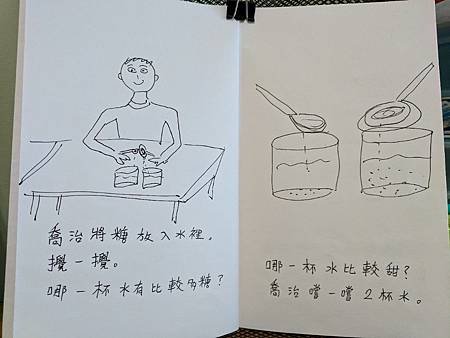 喬治將糖放入水裡。
攪一攪。
哪一杯水有比較多糖？
哪一杯水比較甜？
喬治嚐一嚐2杯水。